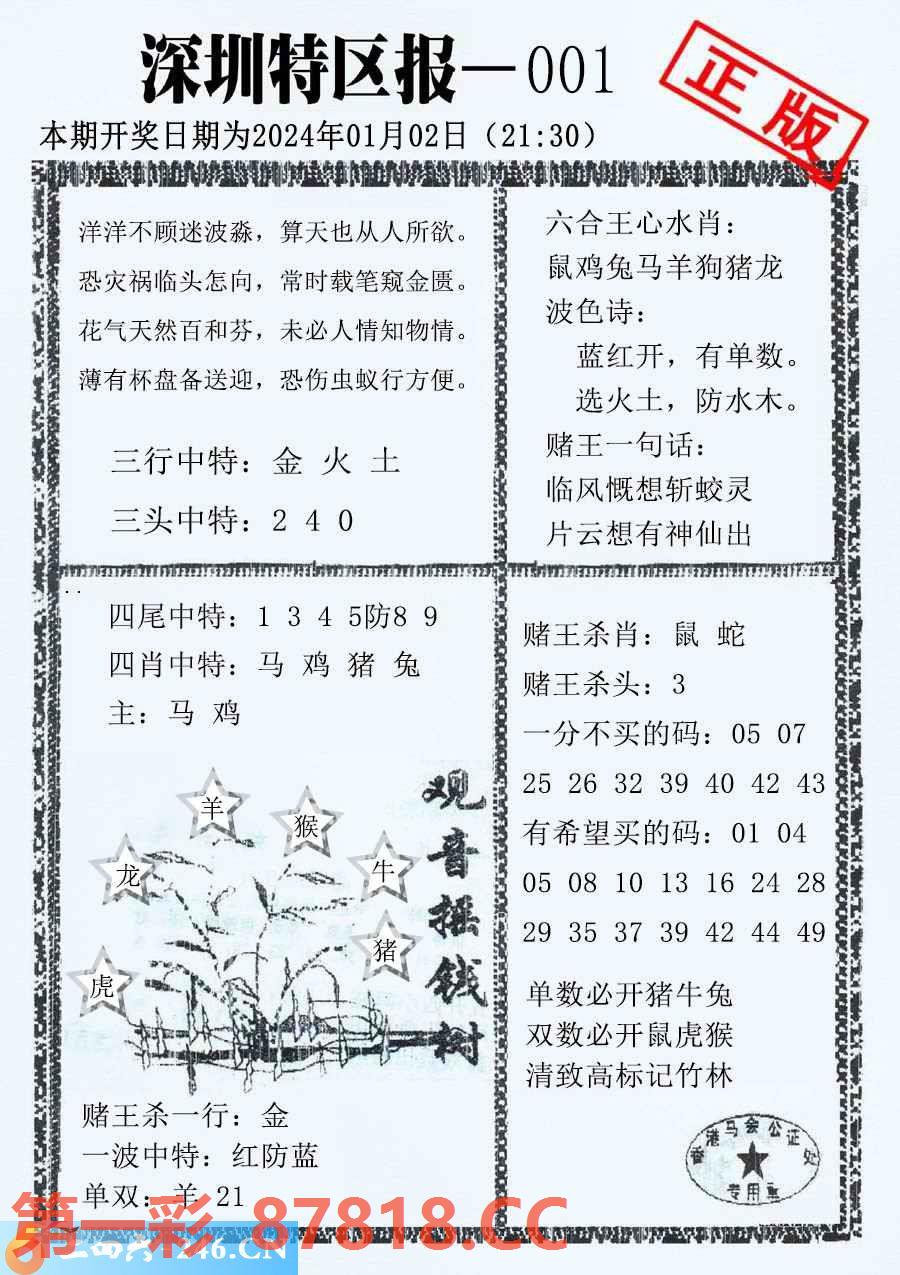 深圳特区报—001
正版
本期开奖日期为2024年01月02日（21:30）
洋洋不顾迷波淼，算天也从人所欲。
恐灾祸临头怎向，常时载笔窥金匮。
花气天然百和芬，未必人情知物情。
薄有杯盘备送迎，恐伤虫蚁行方便。
三行中特：金 火 土
三头中特：2 4 0
六合王心水肖：
鼠鸡兔马羊狗猪龙
波色诗：
蓝红开，有单数。
选火土，防水木。
赌王一句话：
临风慨想斩蛟灵
片云想有神仙出
四尾中特：1 3 4 5防8 9
四肖中特：马 鸡 猪 兔
主：马 鸡
观音摇钱树
羊
猴
龙
牛
猪
虎
赌王杀一行：金
一波中特：红防蓝
单双：羊 21
赌王杀肖：鼠 蛇
赌王杀头：3
一分不买的码：05 07
25 26 32 39 40 42 43
有希望买的码：01 04
05 08 10 13 16 24 28
29 35 37 39 42 44 49
单数必开猪牛兔
双数必开鼠虎猴
清致高标记竹林
香港马会公证处
专用章
第一彩 87818.CC
246.CN